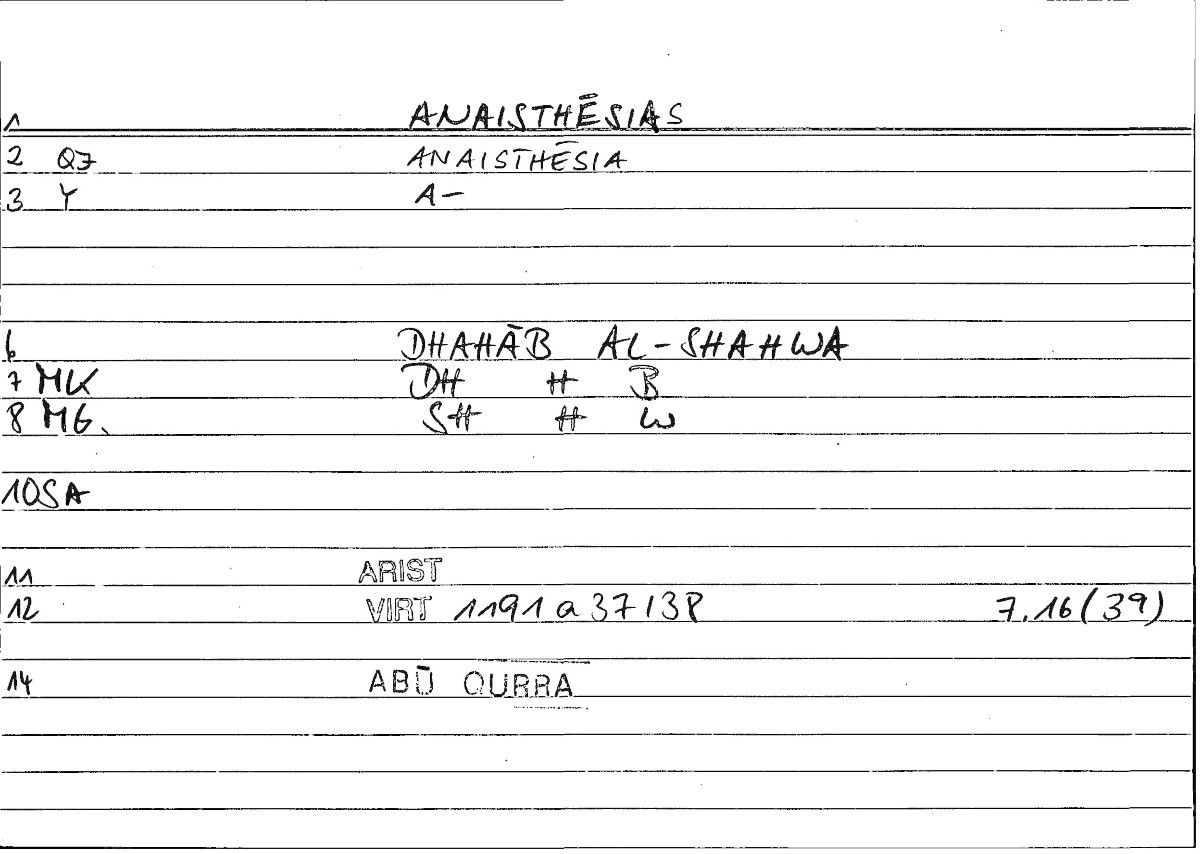 1 ANAISTHĒSIAS
2 QZ ANAISTHĒSIA
3 Y A-
6 DHAHĀB AL-SHAHWA
7 MK DH H B
8 MG. SH H W
10 SA
11 ARIST
12 VIRT 1191 a 37/38 7.16(39)
14 ABŪ QURRA